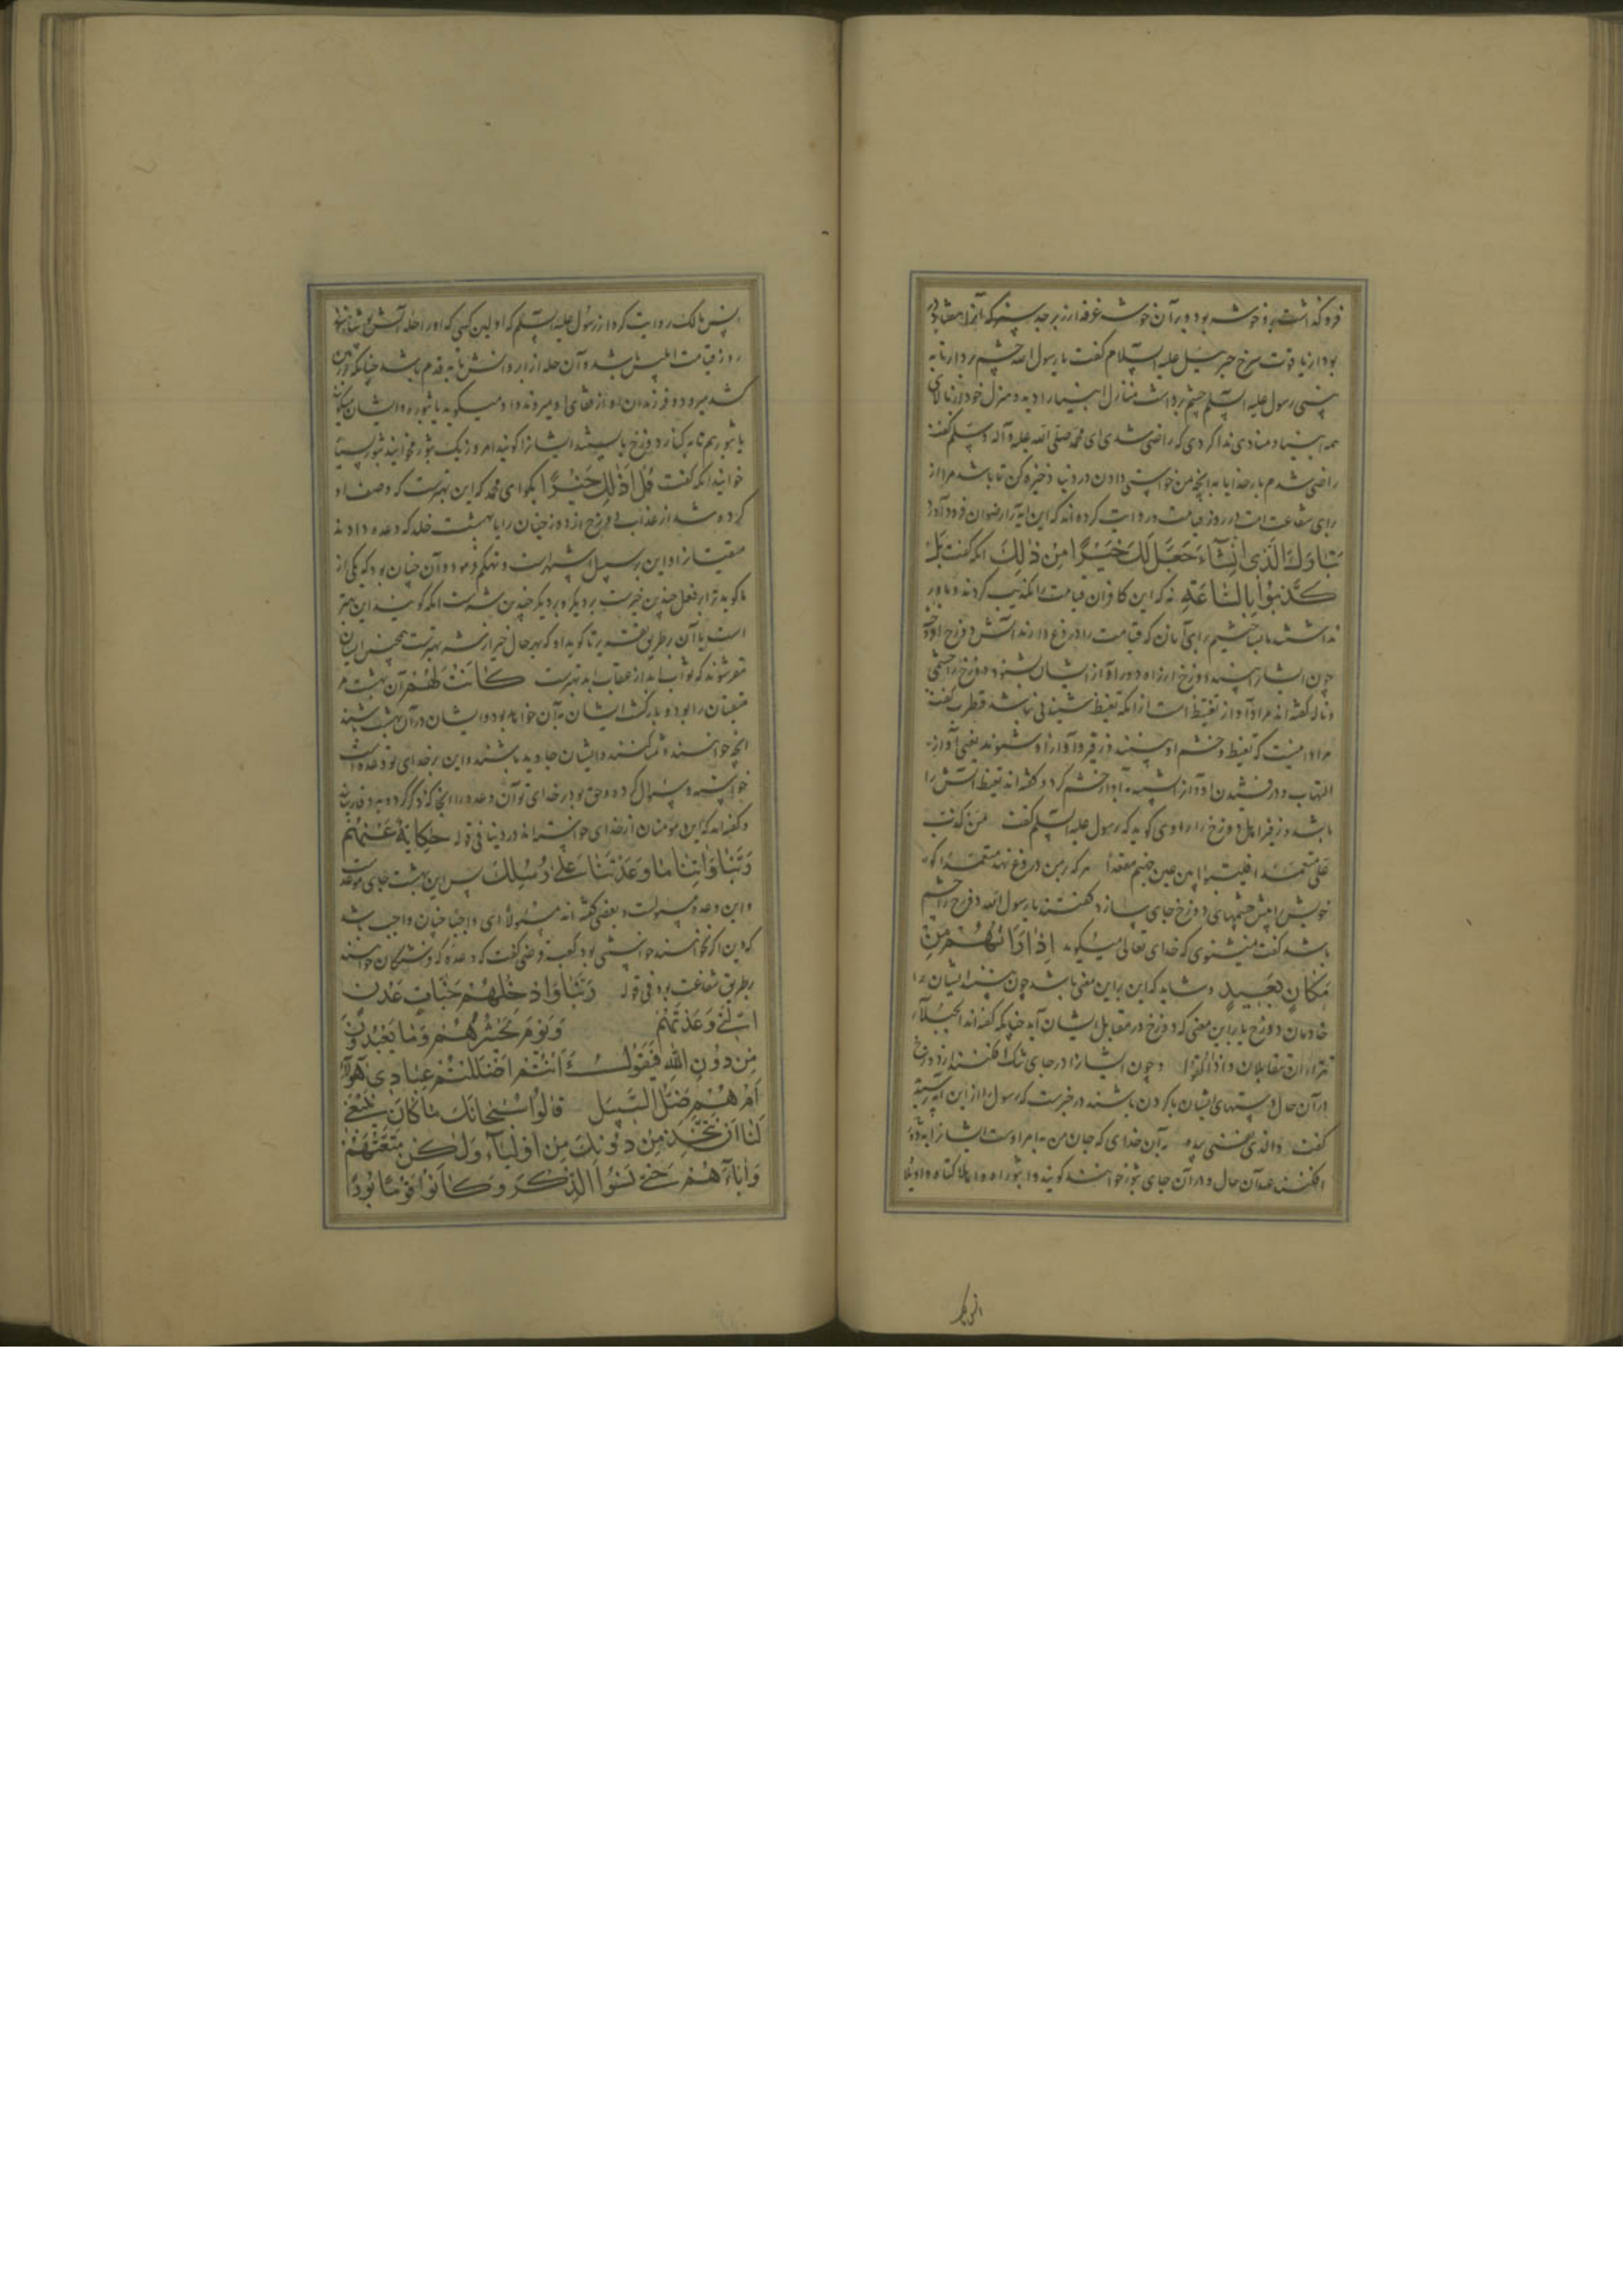 فرو گذاشت و خوشه بود و بر آن خوشه غرفه از زبرجد سبز که آنرا هفتاد در
بود از یاقوت سرخ جبرئیل علیه السلام گفت یا رسول الله چشم بردار تا به
بینی رسول علیه السلم چشم برداشت منازل انبیا را دید و منزل خود از بالای
همه انبیا و منادی ندا کرد که راضی شدی ای محمد صلی الله علیه وآله وسلم گفت
راضی شدم بار خدایا به آنچه من خواستی دادن در دنیا ذخیره کن تا باشد مرا از
برای شفاعت امت در روز قیامت و روایت کرده اند که این ایه را رضوان فرود آورد
تبارك الذی ان شآء جعل لك خیرا من ذلك انکه گفت بل
کذبوا بالساعة نه که این کافران قیامت را تکذیب کردند و باور
نداشتند ما بساختیم برای آنان که قیامت را دروغ دارند آتش دوزخ افروخته
چون ایشان را بیند دوزخ از راه دور آواز از ایشان بشنوند دوزخ را خشمی
و ناله گفته اند مراد آواز تغیظ است از انکه تغیظ شنیدنی نباشد قطرب گفت
مراد آنست که تغیظ و خشم او بینند و زفیر و آواز او شنوند یعنی آواز
التهاب و درفشیدن او آواز
باشد و زفیر اهل دوزخ را راوی گوید که رسول علیه السلم گفت من کذب
علی متعمدا فلیتبوا بین عین جهنم مقعدا هر که بر من دروغ نهد متعمدا گو
خویش را پیش چشمهای دوزخ جای بساز گفتند یا رسول الله دوزخ را چشم
باشد گفت نمیشنوی که خدای تعالی میگوید اذا راتهم من
مکان بعید و شاید که این بر این معنی باشد چون بینند ایشان را
خادمان دوزخ یا بر این معنی که دوزخ در مقابل ایشان آید چنانکه گفته اند الجبلان
متقابلان واذا القوا و چون ایشان را در جای تنک افکنند از دوزخ
در آن حال دستهای ایشان با گردن باشند در خبرست که رسول را از این آیه پرسید
گفت والذی نفسی بیده به آن خدای که جان من به امر اوست ایشان را
افکنند عند آن حال و در آن جای ثبور خوانند گویند وا ثبوراه
انس بن مالک روایت کرد از رسول علیه السلم که اولین کسی که او را حله آتش پوشانند
روز قیامت ابلیس باشد و آن حله از ابروانش تا به قدم باشد چنانکه در زمین
کشد میرود و فرزندان او از قفای او میروند و او میگوید یا ثبوره و ایشان میگویند
یا ثبورهم تا به کنار دوزخ بایستند ایشان را گویند امروز یک ثبور مخوانید ثبور بسیار
خوانید انکه گفت قل اذلك خیرا بگو ای محمد که این بهترست که وصف او
کرده شد از عذاب دوزخ از دوزخیان را یا بهشت خلد که وعده دادند
متقیان را و این بر سبیل
ما گوید ترا بفعل چندین خیرست
است یا آن بر طریق
مقر شوند که ثواب ابد از عقاب ابد بهترست کانت لهم آن بهشت مر
متقیان را بود و بازگشت ایشان به آن خواهد بود و ایشان در آن بهشت باشند
آنچه خواهند و تمنا کنند و ایشان جاوید باشند و این بر خدای تو وعده است
خواسته و سؤال کرده و حق بود بر خدای تو آن وعده را
و گفته اند که این مؤمنان از خدای خواسته اند در دنیا فی قوله حکایة عنهم
ربنا واتنا ما وعدتنا علی رسلك پس این بهشت جای موعدست
و این وعده مسئولست و بعضی گفته اند مسئولا ای واجبا چنان واجب باشد
که دین اگر نخواستند خواستنی بود کعب قرظی گفت که وعده که فرشتگان خواستند
بطریق شفاعت بود فی قوله ربنا وادخلهم جنات عدن
التی وعدتهم ویوم نحشرهم وما یعبدون
من دون الله فیقول ءانتم اضللتم عبادی هؤلآ
ام هم ضلوا السبیل قالوا سبحانك ما کان ینبغی
لنا ان نتخذ من دونك من اولیآء ولکن متعتهم
واباءهم حتی نسوا الذکر وکانوا قوما بورا